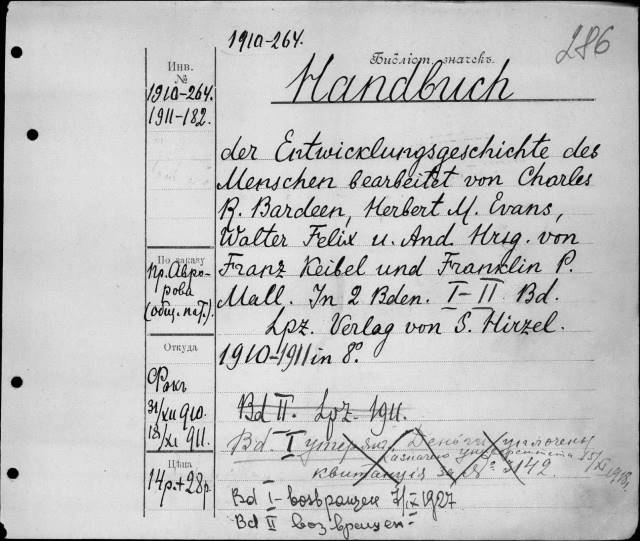 1910-264.
286
Библіот. значекъ.
Инв.
№
1910-264.
1911-182.
Handbuch
der Entwicklungsgeschichte des
Menschen bearbeitet von Charles
R. Bardeen, Herbert M. Evans,
Walter Felix u. And. Hrsg. von
Franz Keibel und Franklin P.
Mall. In 2 Bden. I-II Bd.
Lpz. Verlag von S. Hirzel.
1910-1911 in 8º.
По заказу
пр. Авро-
рова
(общ. пат.).
Откуда
Фокъ
31/XII 910.
18/XI 911.
Цѣна
14р.+28р.
Bd II. Lpz. 1911.
Bd. I утерянъ. Деньги уплочены
квитанція за № 3142. 15/XI 1918г.
Bd I - возвращен 7/X 1927
Bd II возвращен